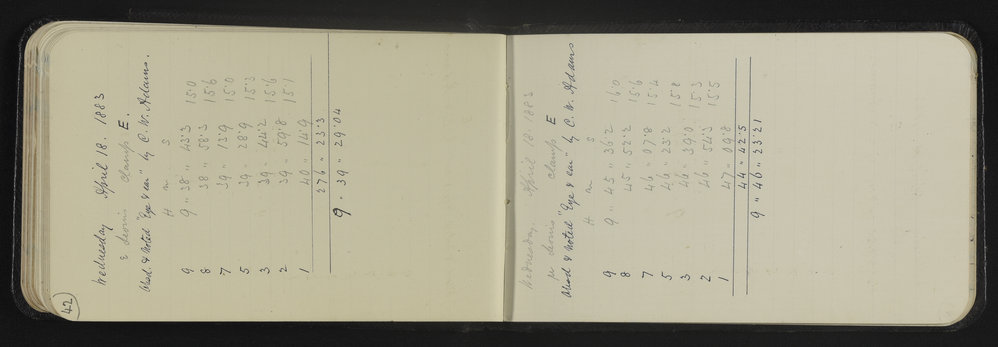 42
Wednesday April 18. 1883
ε Leonis clamp E.
Obsd. & Noted "Eye & ear" by C. W. Adams.
H m s
9 9 " 38 " 43.3 15.0
8 38 " 58.3 15.6
7 39 " 13.9 15.0
5 39 " 28.9 15.3
3 39 " 44.2 15.6
2 39 " 59.8 15.1
1 40 " 14.9
276 " 23.3
9 " 39 " 29.04
Wednesday, April 18. 1883
μ Leonis clamp E
Obsd & Noted "Eye & ear" by C. W. Adams
H m s
9 9 " 45 " 36.2 16.0
8 45 " 52.2 15.6
7 46 " 07.8 15.4
5 46 " 23.2 15.8
3 46 " 39.0 15.3
2 46 " 54.3 15.5
1 47 " 09.8
44 " 42.5
9 " 46 " 23.21